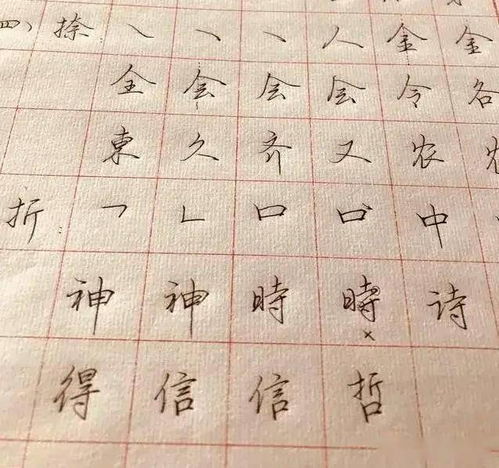 四、捺㇏㇏㇏人金金
全会会会令各
東久齐又农农
折㇕㇗口口中
神神時時诗
×
得信信哲